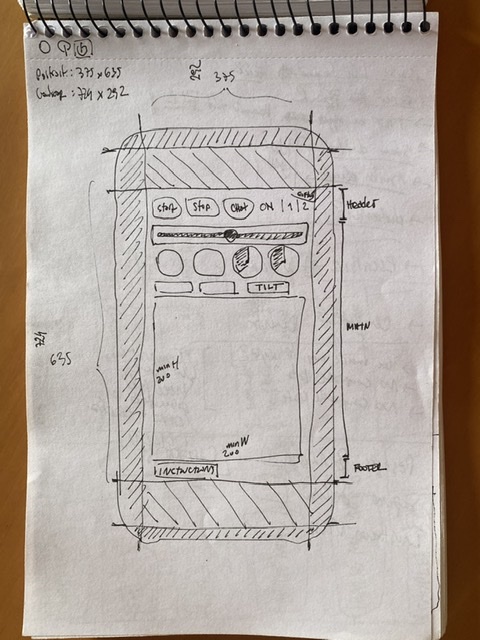 Portrait: 375 x 635
724 x 292
292
375
Start
Stop
Chat
ON | 1 | 2
Header
TILT
MAIN
724
635
min H
200
min W
200
INSTRUCTIONS
FOOTER